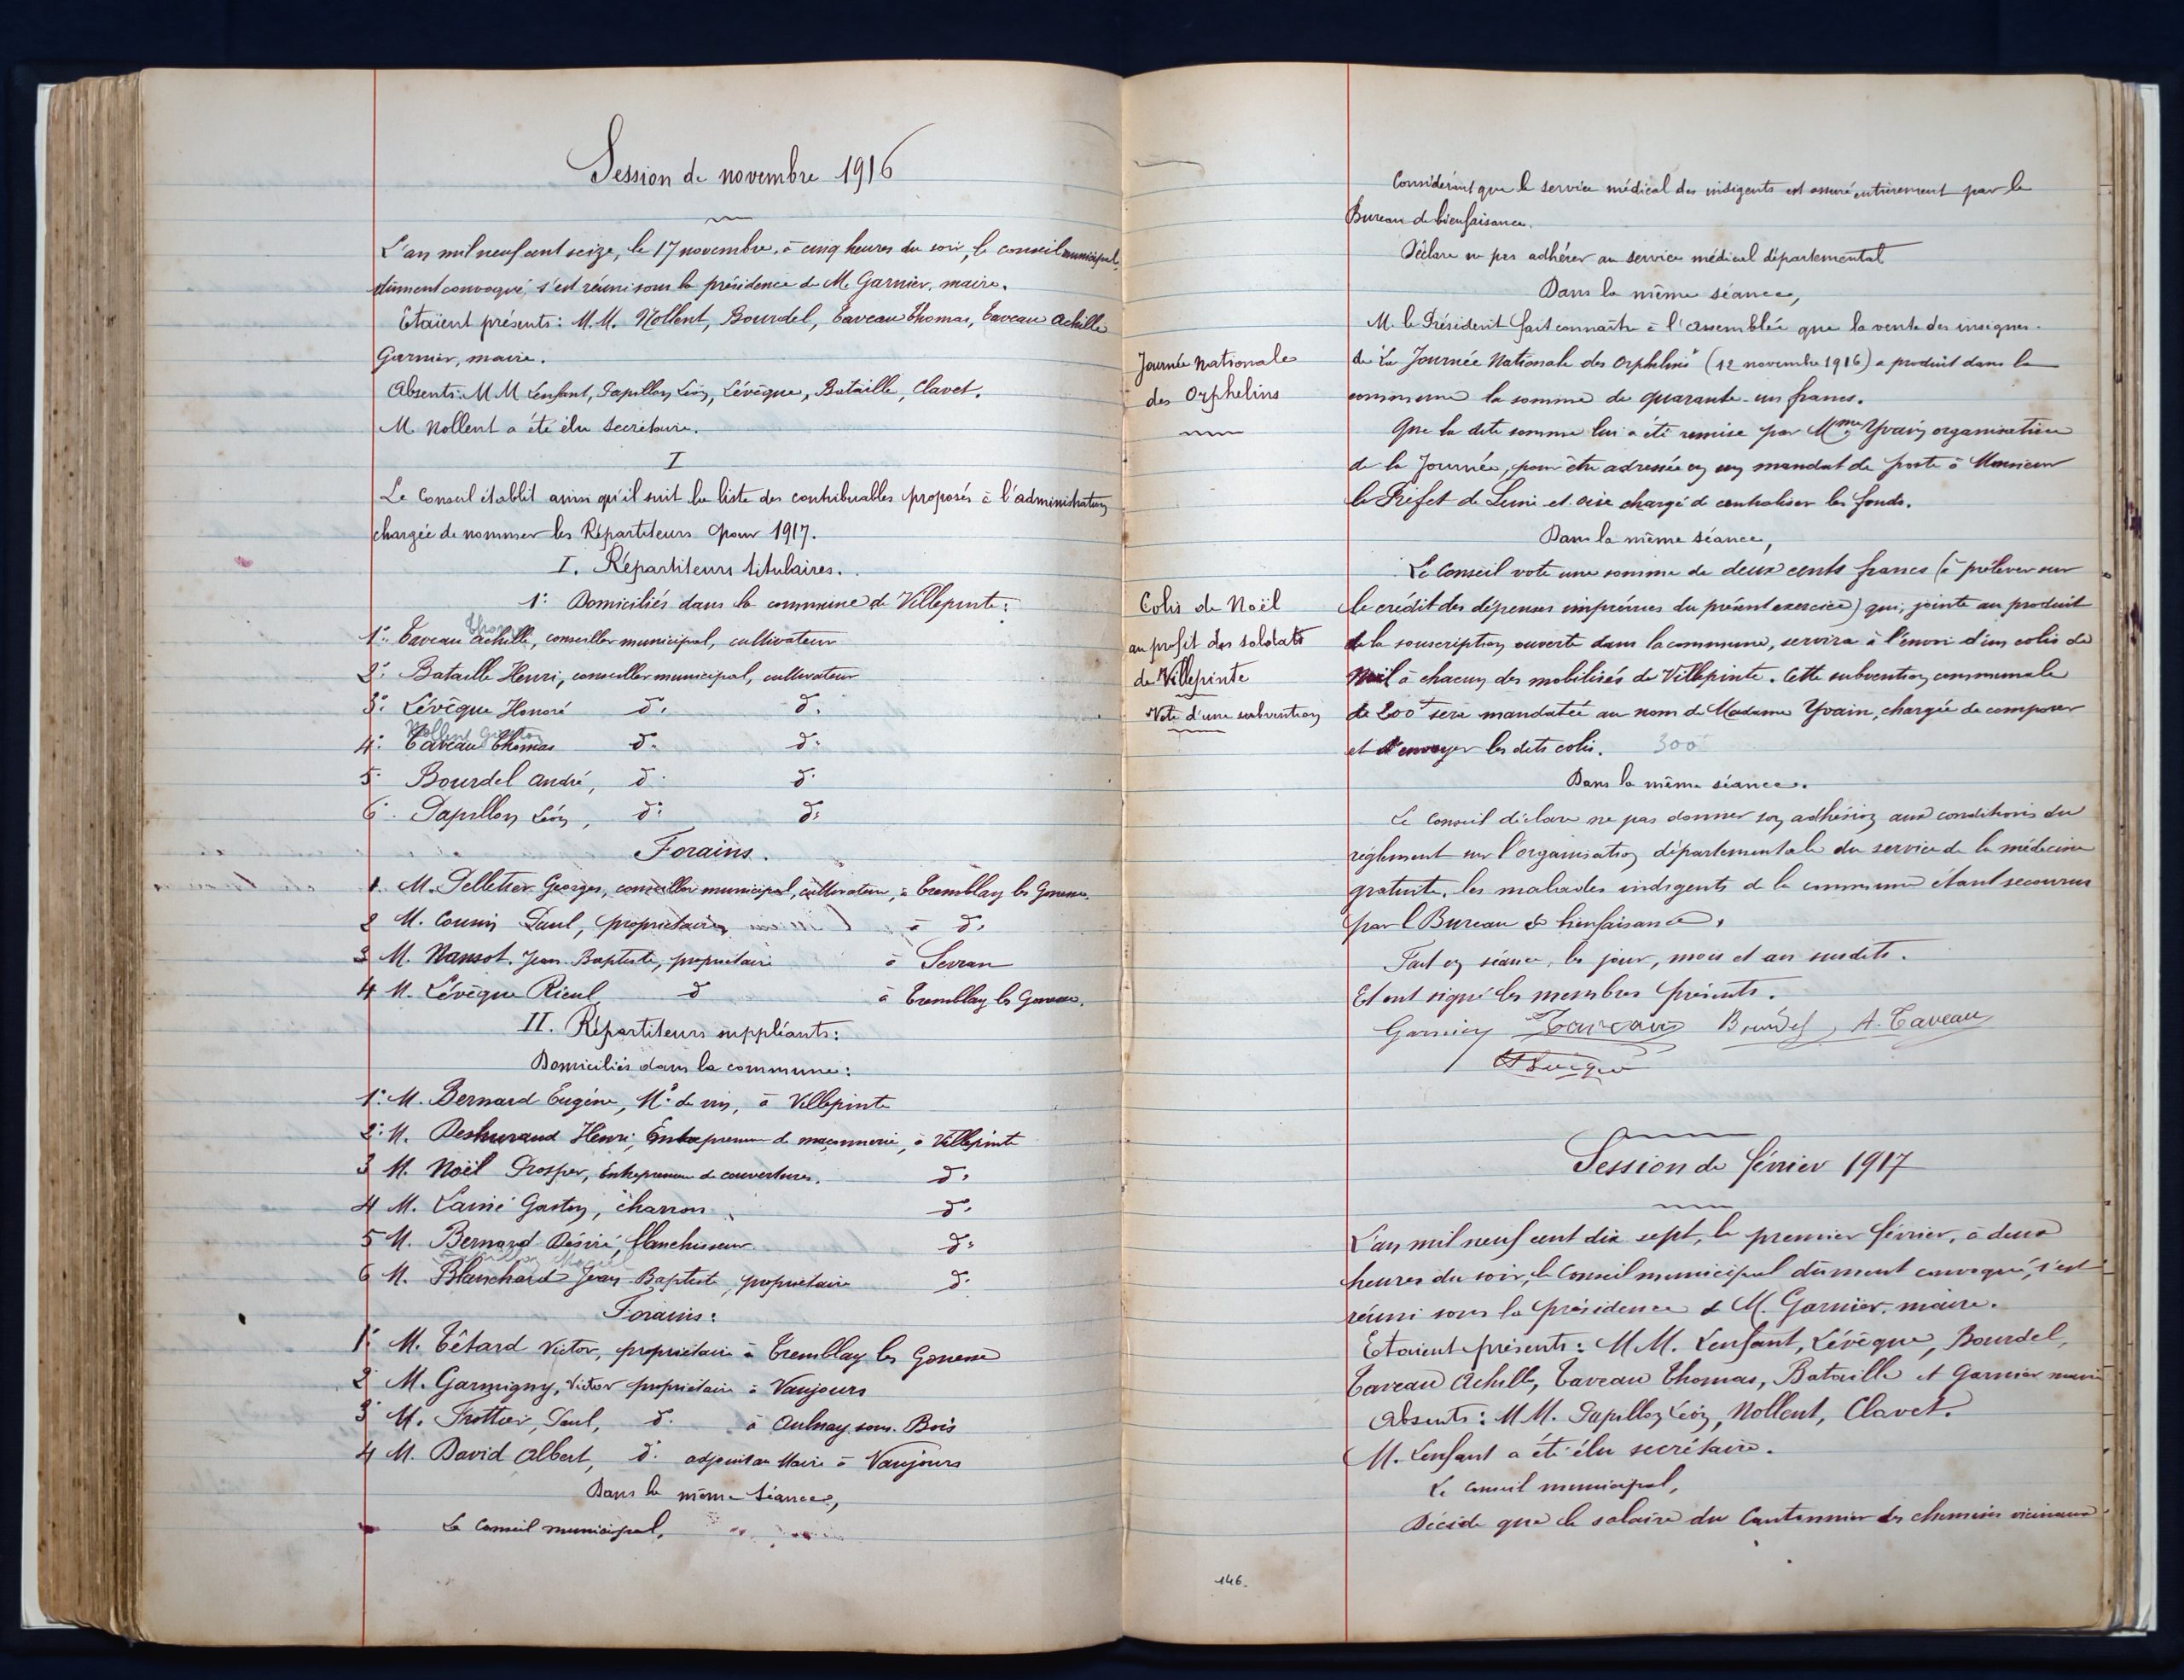 Session de novembre 1916
L'an mil neuf cent seize, le 17 novembre, à cinq heures du soir, le conseil municipal,
dûment convoqué, s'est réuni sous la présidence de M. Garnier, maire.
Etaient présents: M.M. Nollent, Bourdel, Taveau Thomas, Taveau Achille
Garnier, maire.
Absents: MM Lenfant, Papillon Léon, Lévêque, Bataille, Clavet.
M. Nollent a été élu secrétaire.
I
Le Conseil établit ainsi qu'il suit la liste des contribuables proposés à l'administration
chargée de nommer les Répartiteurs pour 1917.
I. Répartiteurs titulaires.
1° Domiciliés dans la commune de Villepinte:
Thomas
1° Taveau Achille, conseiller municipal, cultivateur
2° Bataille Henri, conseiller municipal, cultivateur
3° Lévêque Honoré d° d°
Nollent Gaston
4° Taveau Thomas d° d°
5° Bourdel André, d° d°
6° Papillon Léon, d° d°
Forains.
1. M. Pelletier Georges, conseiller municipal, cultivateur, à Tremblay les Gonesse.
2 M. Cousin Paul, propriétaire à d°
3 M. Nansot Jean Baptiste, propriétaire à Sevran
4 M. Lévêque Rieul d° à Tremblay les Gonesse.
II. Répartiteurs suppléants:
Domiciliés dans la commune:
1° M. Bernard Eugène, Md de vin, à Villepinte
2° M. Henri, Entrepreneur de maçonnerie, à Villepinte
3 M. Noël Prosper, Entrepreneur de couvertures. d°
4 M. Lainé Gaston, charron d°
5 M. Bernard Désiré, blanchisseur d°
6 M. Blanchard Jean Baptiste, propriétaire d°
Forains:
1° M. Têtard Victor, propriétaire à Tremblay les Gonesse
2° M. Garmigny, Victor propriétaire à Vaujours
3° M. Frottier, Paul, d° à Aulnay sous Bois
4 M. David Albert, d° adjoint au Maire à Vaujours
Dans la même séance,
Le Conseil municipal,
Considérant que le service médical des indigents est assuré entièrement par le
Bureau de bienfaisance.
Déclare ne pas adhérer au service médical départemental
Dans la même séance,
M. le Président fait connaître à l'assemblée que la vente des insignes
Journée Nationale
des Orphelins
de "La Journée Nationale des Orphelins" (12 novembre 1916) a produit dans la
commune la somme de quarante-un francs.
Que la dite somme lui a été remise par Mme Yvain organisatrice
de la Journée, pour être adressée en un mandat de poste à Monsieur
le Préfet de Seine et Oise chargé de centraliser les fonds.
Dans la même séance,
Le Conseil vote une somme de deux cents francs (à prélever sur
Colis de Noël
au profit des soldats
de Villepinte
Vote d'une subvention
le crédit des dépenses imprévues du présent exercice) qui, jointe au produit
de la souscription ouverte dans la commune, servira à l'envoi d'un colis de
Noël à chacun des mobilisés de Villepinte. Cette subvention communale
de 200f sera mandatée au nom de Madame Yvain, chargée de composer
et d'envoyer les dits colis. 300
Dans la même séance.
Le Conseil déclare ne pas donner son adhésion aux conditions du
règlement sur l'organisation départementale du service de la médecine
gratuite, les malades indigents de la commune étant secourus
par l Bureau de bienfaisance.
Fait en séance, les jour, mois et an susdits.
Et ont signé les membres présents.
Garnier Taveau Bourdel A. Taveau
Session de février 1917
L'an mil neuf cent dix sept, le premier février, à deux
heures du soir, le Conseil municipal dûment convoqué, s'est
réuni sous la présidence de M. Garnier, maire.
Etaient présents: MM. Lenfant, Lévêque, Bourdel,
Taveau Achille, Taveau Thomas, Bataille et Garnier maire
Absents: MM. Papillon Léon, Nollent, Clavet.
M. Lenfant a été élu secrétaire.
Le Conseil municipal,
Décide que le salaire du Cantonnier des chemins vicinaux
146.